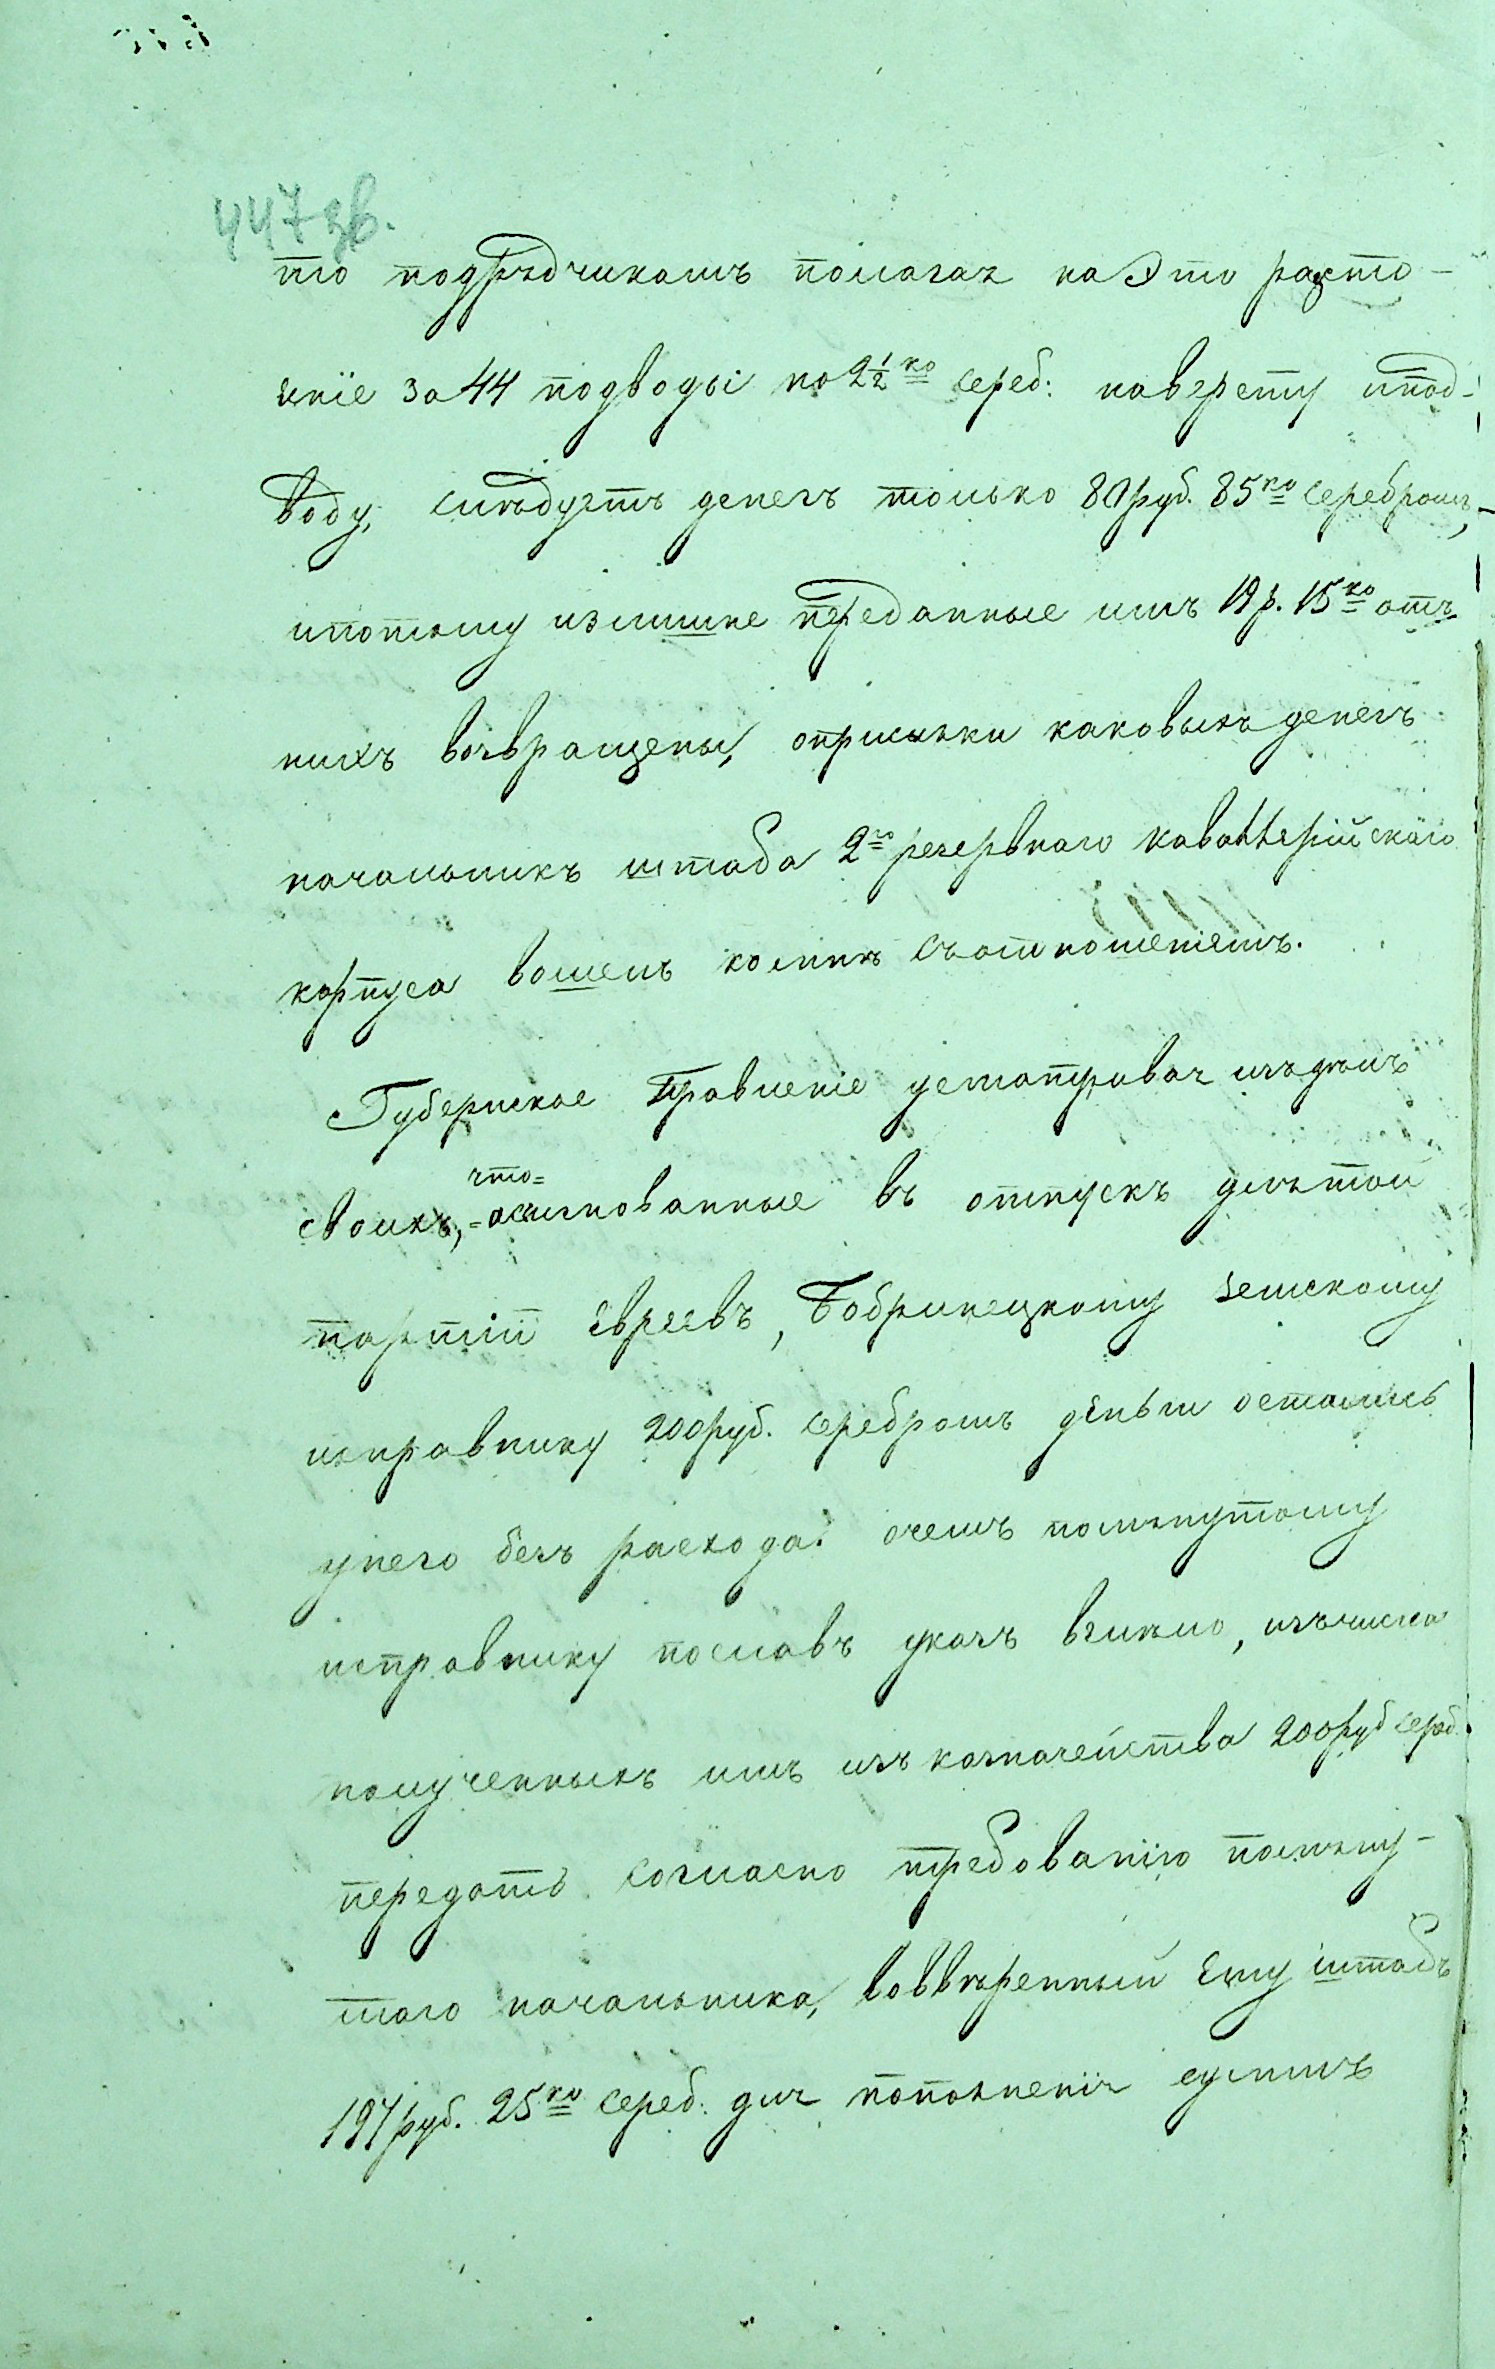 447 зв.
то подрядчикамъ полагая на Это разсто-
яніе за 44 подводы по 2½ ко сереб: наверсту ипод-
воду, слѣдуетъ денегъ только 80 руб. 85 ко серебромъ,
ипотому излишне переданные имъ 19 р. 15 ко отъ
нихъ возвращены, оприсылки каковыхъ денегъ
начальникъ штаба 2го резервнаго кавалерійскаго
корпуса вошелъ комнѣ съотношеніемъ.
Губернское Правленіе усматривая изъдѣлъ
своихъ, что= =асигнованные въ отпускъ длятой
партіи Евреевъ, Бобринецкому Земскому
исправнику 200 руб. серебромъ деньги остались
унего безъ расхода. очемъ помянутому
исправнику пославъ указъ вѣлѣло, изъчисла
полученныхъ имъ изъ казначейства 200 руб сереб.
передать согласно требованію помяну-
таго начальника, вовверенный Ему штабъ
197 руб. 25 ко сереб. для пополненія суммъ